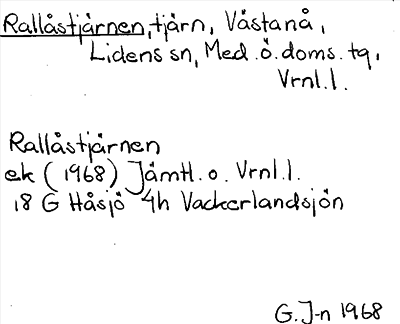 Rallåstjärnen, tjärn, Västanå,
Lidens sn, Med. ö. doms. tg,
Vrnl.l.
Rallåstjärnen
ek (1968) Jämtl. o. Vrnl.l.
18 G Håsjö 4h Vackerlandsjön
G. J-n 1968